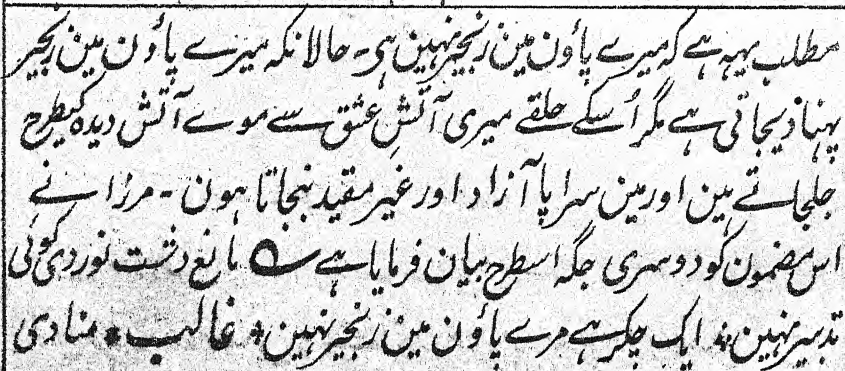 مطلب یہہ ہے کہ میرے پاؤن مین زنجیر نہین ہی۔ حالانکہ میرے پاؤن مین زنجیر
پہنا دیجاتی ہے مگر اُسکے حلقے میری آتشِ عشق سے موے آتش دیدہ کیطرح
جلجاتے ہین اور مین سراپا آزاد اور غیر مقید بنجاتا ہون۔ مرزا نے
اس مضمون کو دوسری جگہ اسطرح بیان فرمایا ہے ؎ مانع دشت نوردی کوئی
تدبیر نہین * ایک چکر ہے مرے پاؤن مین زنجیر نہین * غالب * منادی